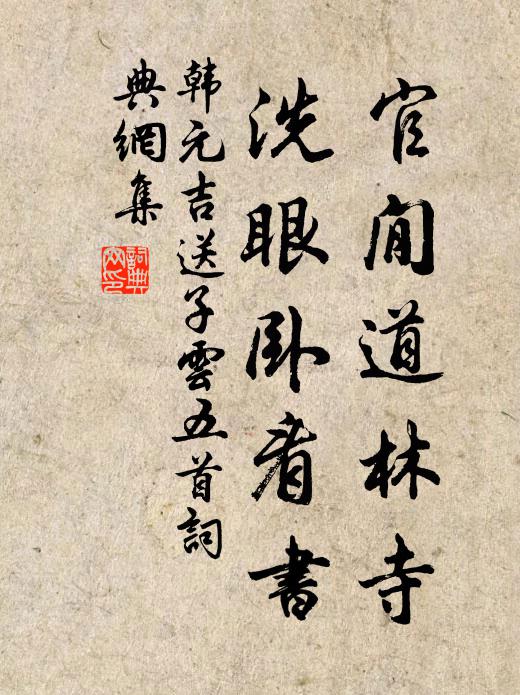 官閒道林寺
洗眼卧看書
韩元吉送子雲五首詞
典網集
詞典